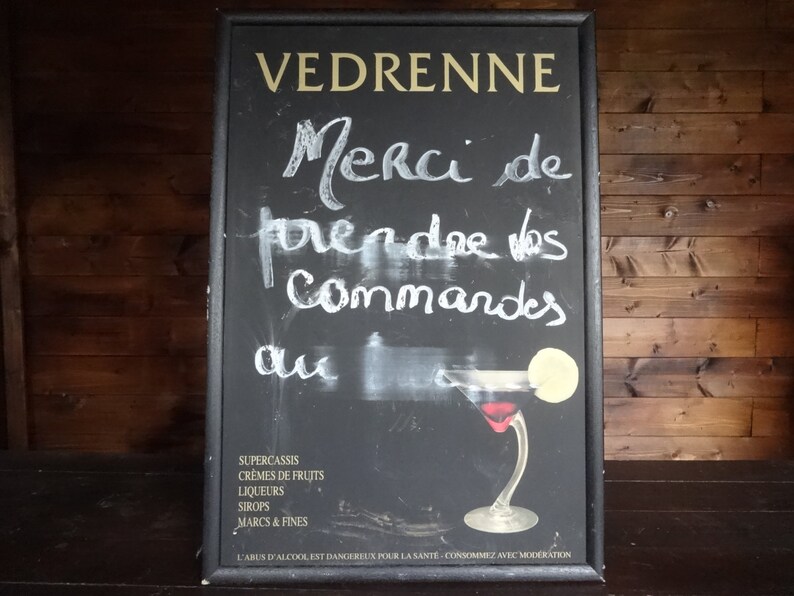 VEDRENNE
Merci de
prendre vos
commandes
au
SUPERCASSIS
CRÈMES DE FRUITS
LIQUEURS
SIROPS
MARCS & FINES
L'ABUS D'ALCOOL EST DANGEREUX POUR LA SANTÉ - CONSOMMEZ AVEC MODÉRATION